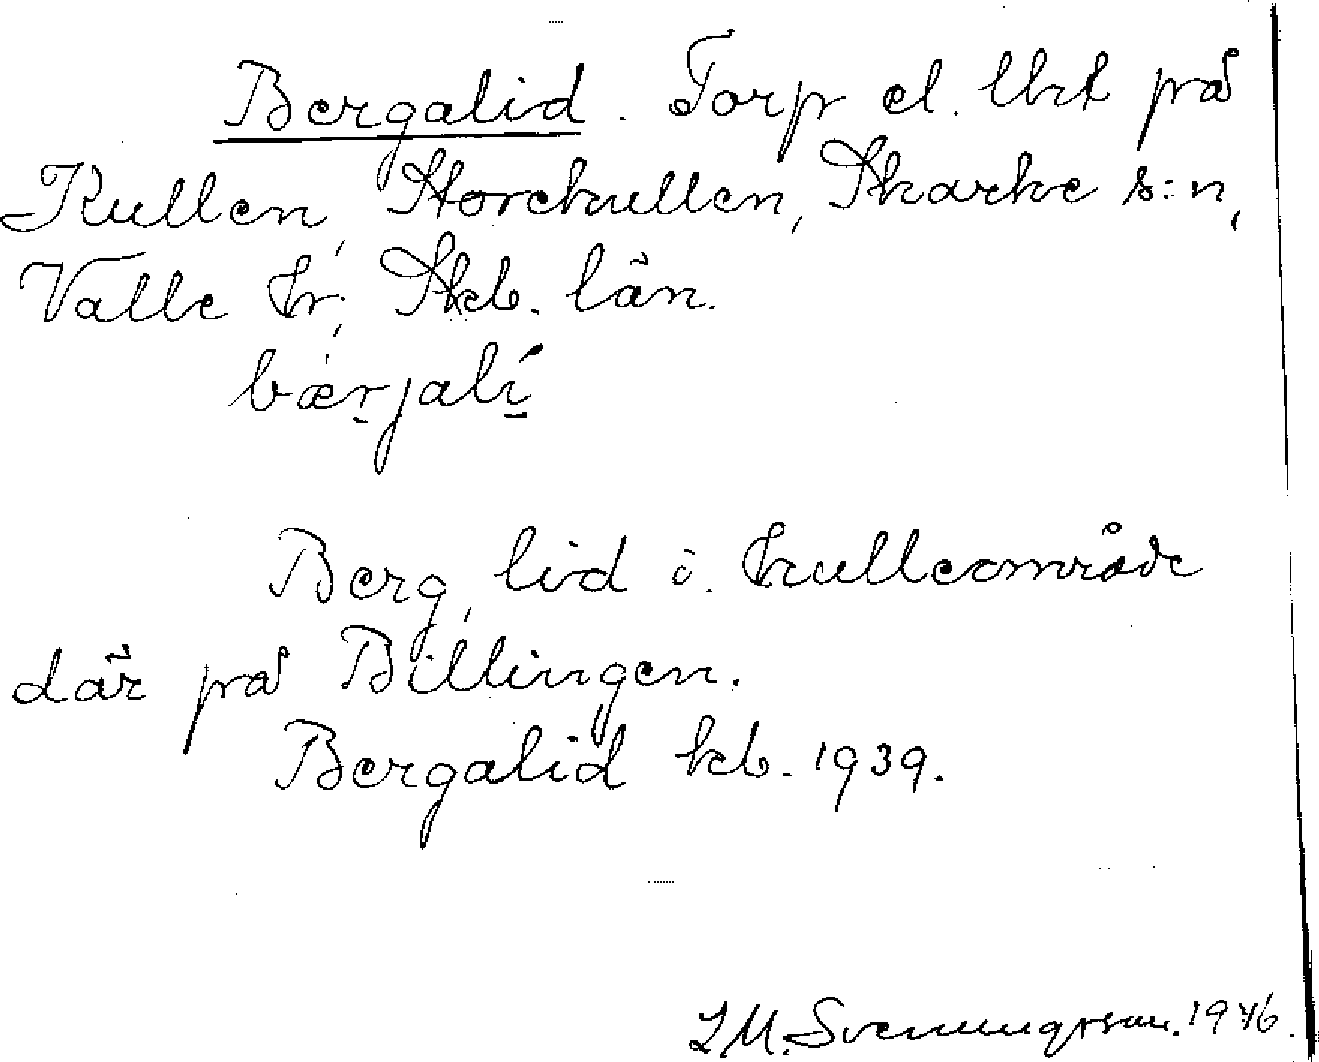 Bergalid. Torp el. lht på
Kullen, Storekullen, Skarke s:n,
Valle hr, Skb. län.
bærjalí
Berg, lid i. kulleområde
där på Billingen.
Bergalid kb. 1939.
I M. Svenungsson. 1946.